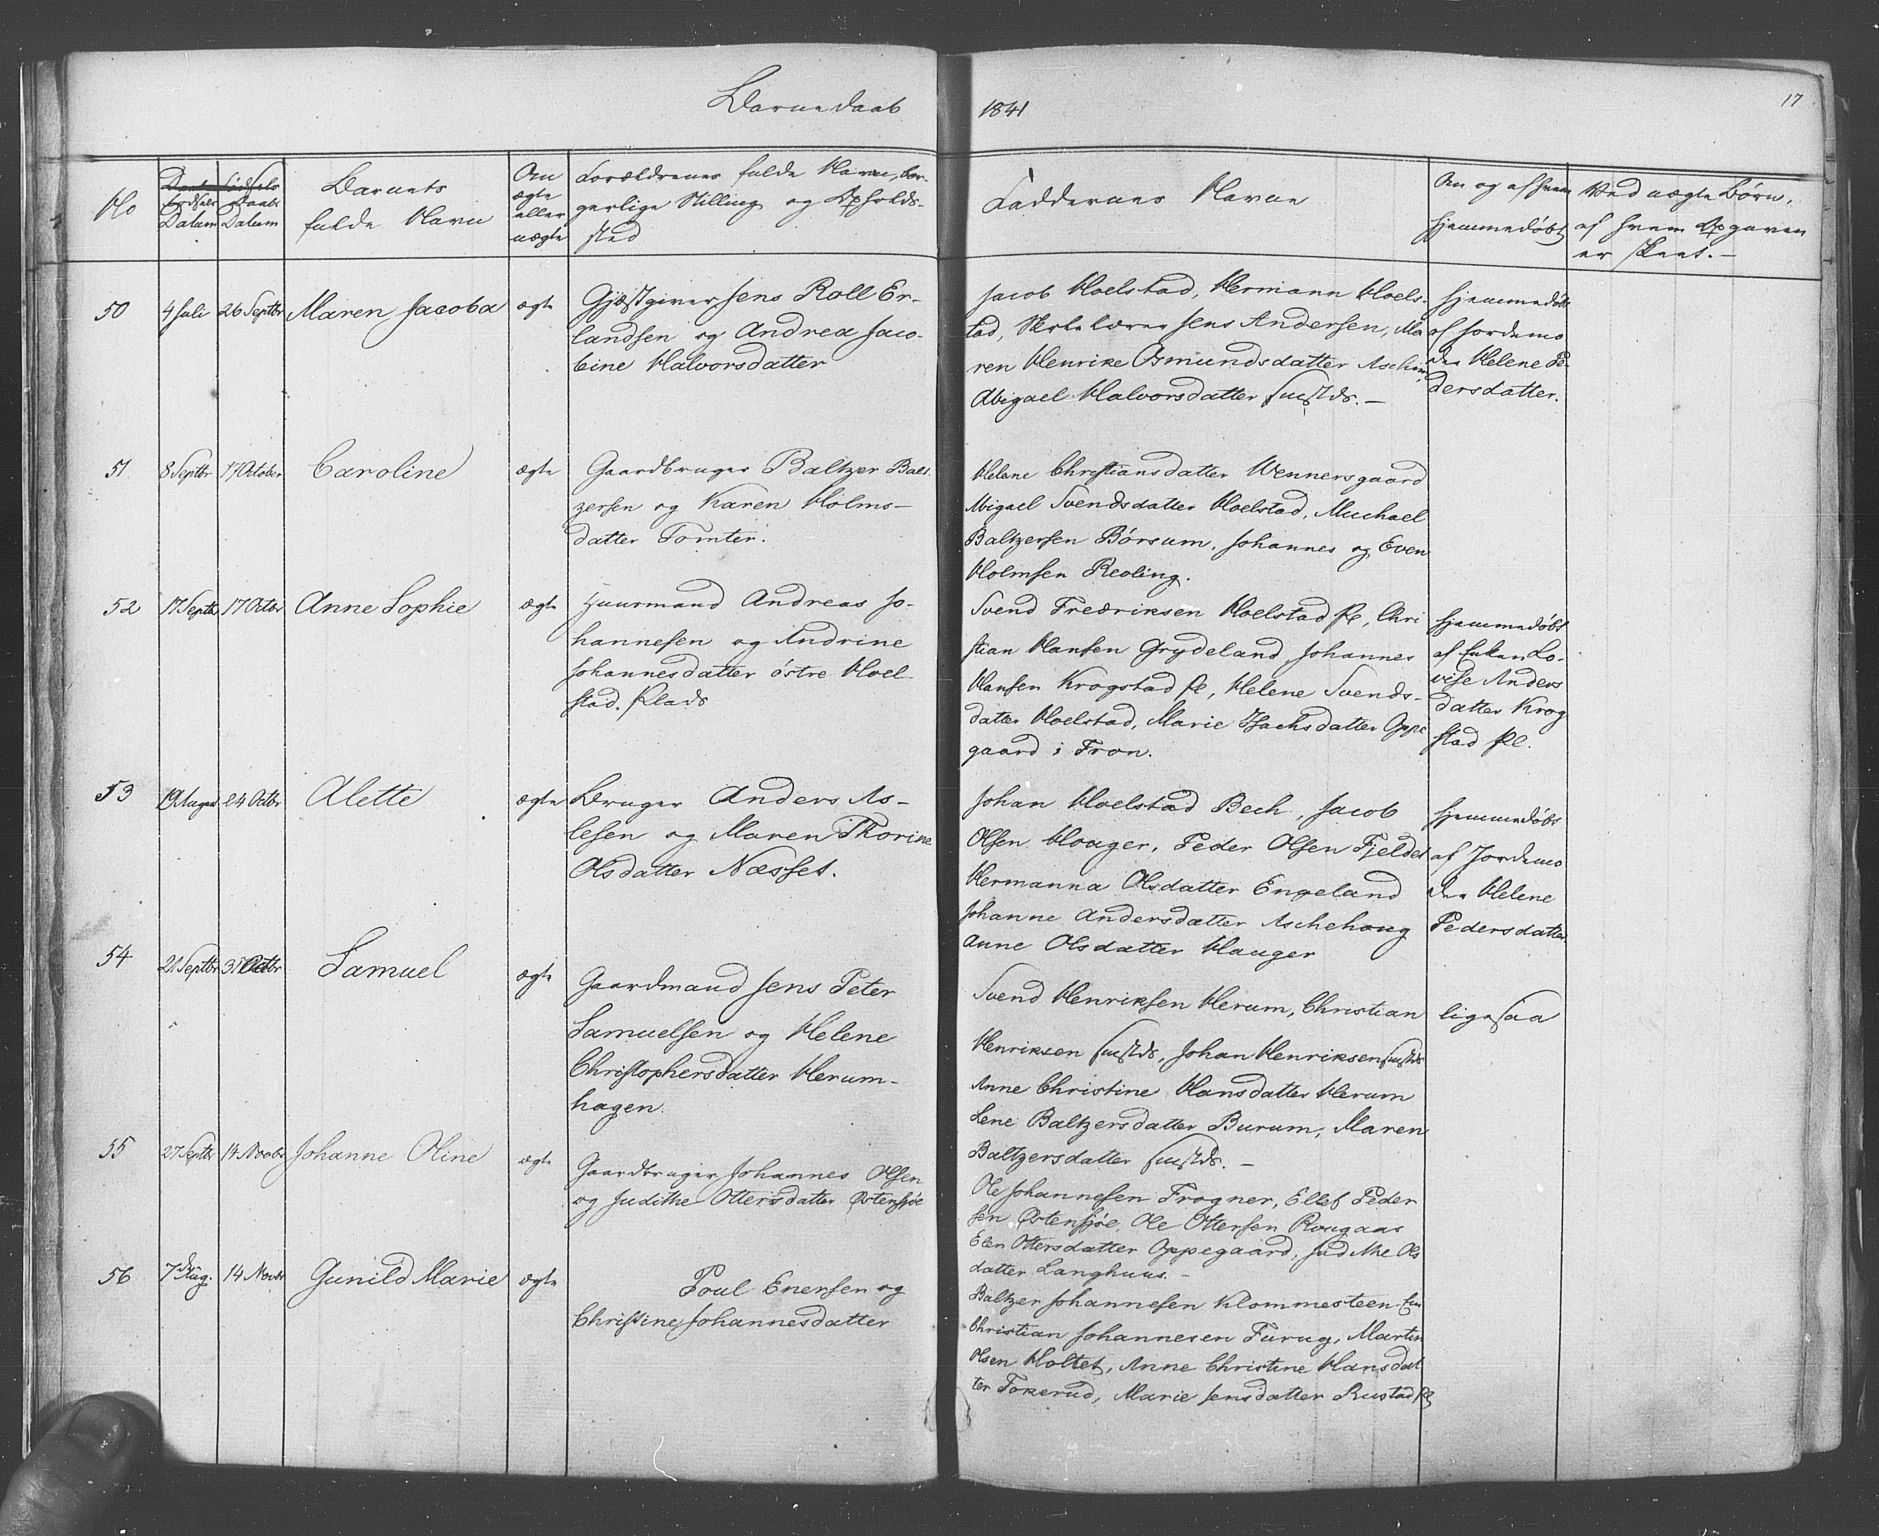 Barnedaab
1841
17
No
Fødsels Datum
Daabs Datum
Barnets
fulde Navn
Om
ægte
eller
uægte
Forældrenes fulde Navn, bor-
gerlige Stilling og Opholds-
sted
Faddernes Navne
Om og af hvem
hjemmedøbt
Ved uægte Børn,
af hvem Opgaven
er skeet. –
50
4 Juli
26 Septbr
Maren Jacoba
ægte
Gjæstgiver Jens Roll Er-
landsen og Andrea Jaco-
bine Halvorsdatter
Jacob Hoelstad, Hermann Hoels-
tad, Jens Andersen, Ma
ren Henrike Osmundsdatter
Abigael Halvorsdatter . –
hjemmedøbt
af Jordemo
der Helene Pe-
dersdatter.
51
8 Septbr
17 October
Caroline
ægte
Gaardbruger Baltzer Balt
zersen og Karen Holms-
datter Tomter.
Helene Christiansdatter Wennersgaard
Abigael Svendsdatter Hoelstad, Michael
Baltzersen Børsum, Johannes og Even
Holmsen Reoling.
52
17 Septbr
17 Octbr
Anne Sophie
ægte
Huusmand Andreas Jo-
hannesen og Andrine
Johannesdatter østre Hoel-
stad. Plads
Svend Fredriksen Hoelstad pl, Chri
stian Hansen Grydeland, Johannes
Hansen Krogstad pl, Helene Svends-
datter Hoelstad, Marie Isachsdatter Oppe
gaard i Fron.
hjemmedøbt
af Enken Lo-
vise Anders
datter Krog
stad pl.
53
19 August
24 Octbr
Alette
ægte
Bruger Anders As-
lesen og Maren Thorine
Olsdatter Næsset.
Johan Hoelstad Bech, Jacob
Olsen Houger, Peder Olsen Fjeldet
Hermanna Olsdatter Engeland
Johanne Andersdatter Aschehoug
Anne Olsdatter Hauger
hjemmedøbt
af Jordemo
der Helene
Pedersdatter
54
21 Septbr
31 Octbr
Samuel
ægte
Gaardmand Jens Peter
Samuelsen og Helene
Christophersdatter Herum-
hagen.
Svend Henriksen Herum, Christian
Henriksen , Johan Henriksen
Anne Christine Hansdatter Herum
Lene Baltzersdatter Burum, Maren
Baltzersdatter . –
ligesaa
55
27 Septbr
14 Novbr
Johanne Oline
ægte
Gaardbruger Johannes Olsen
og Judithe Ottersdatter Østensjøe
Ole Johannesen Frogner, Ellef Peder
sen Østensjøe, Ole Ottersen Rougaas
Elen Ottersdatter Oppegaard, Judithe Ols
datter Langhuus. –
56
7 Aug.
14 Novbr
Gunild Marie
ægte
Poul Enersen og
Christine Johannesdatter
Baltzer Johannesen Klommesteen
Christian Johannesen Furug, Martin
Olsen Holtet, Anne Christine Hansdat
ter Tokerud, Marie Jensdatter Rustad pl